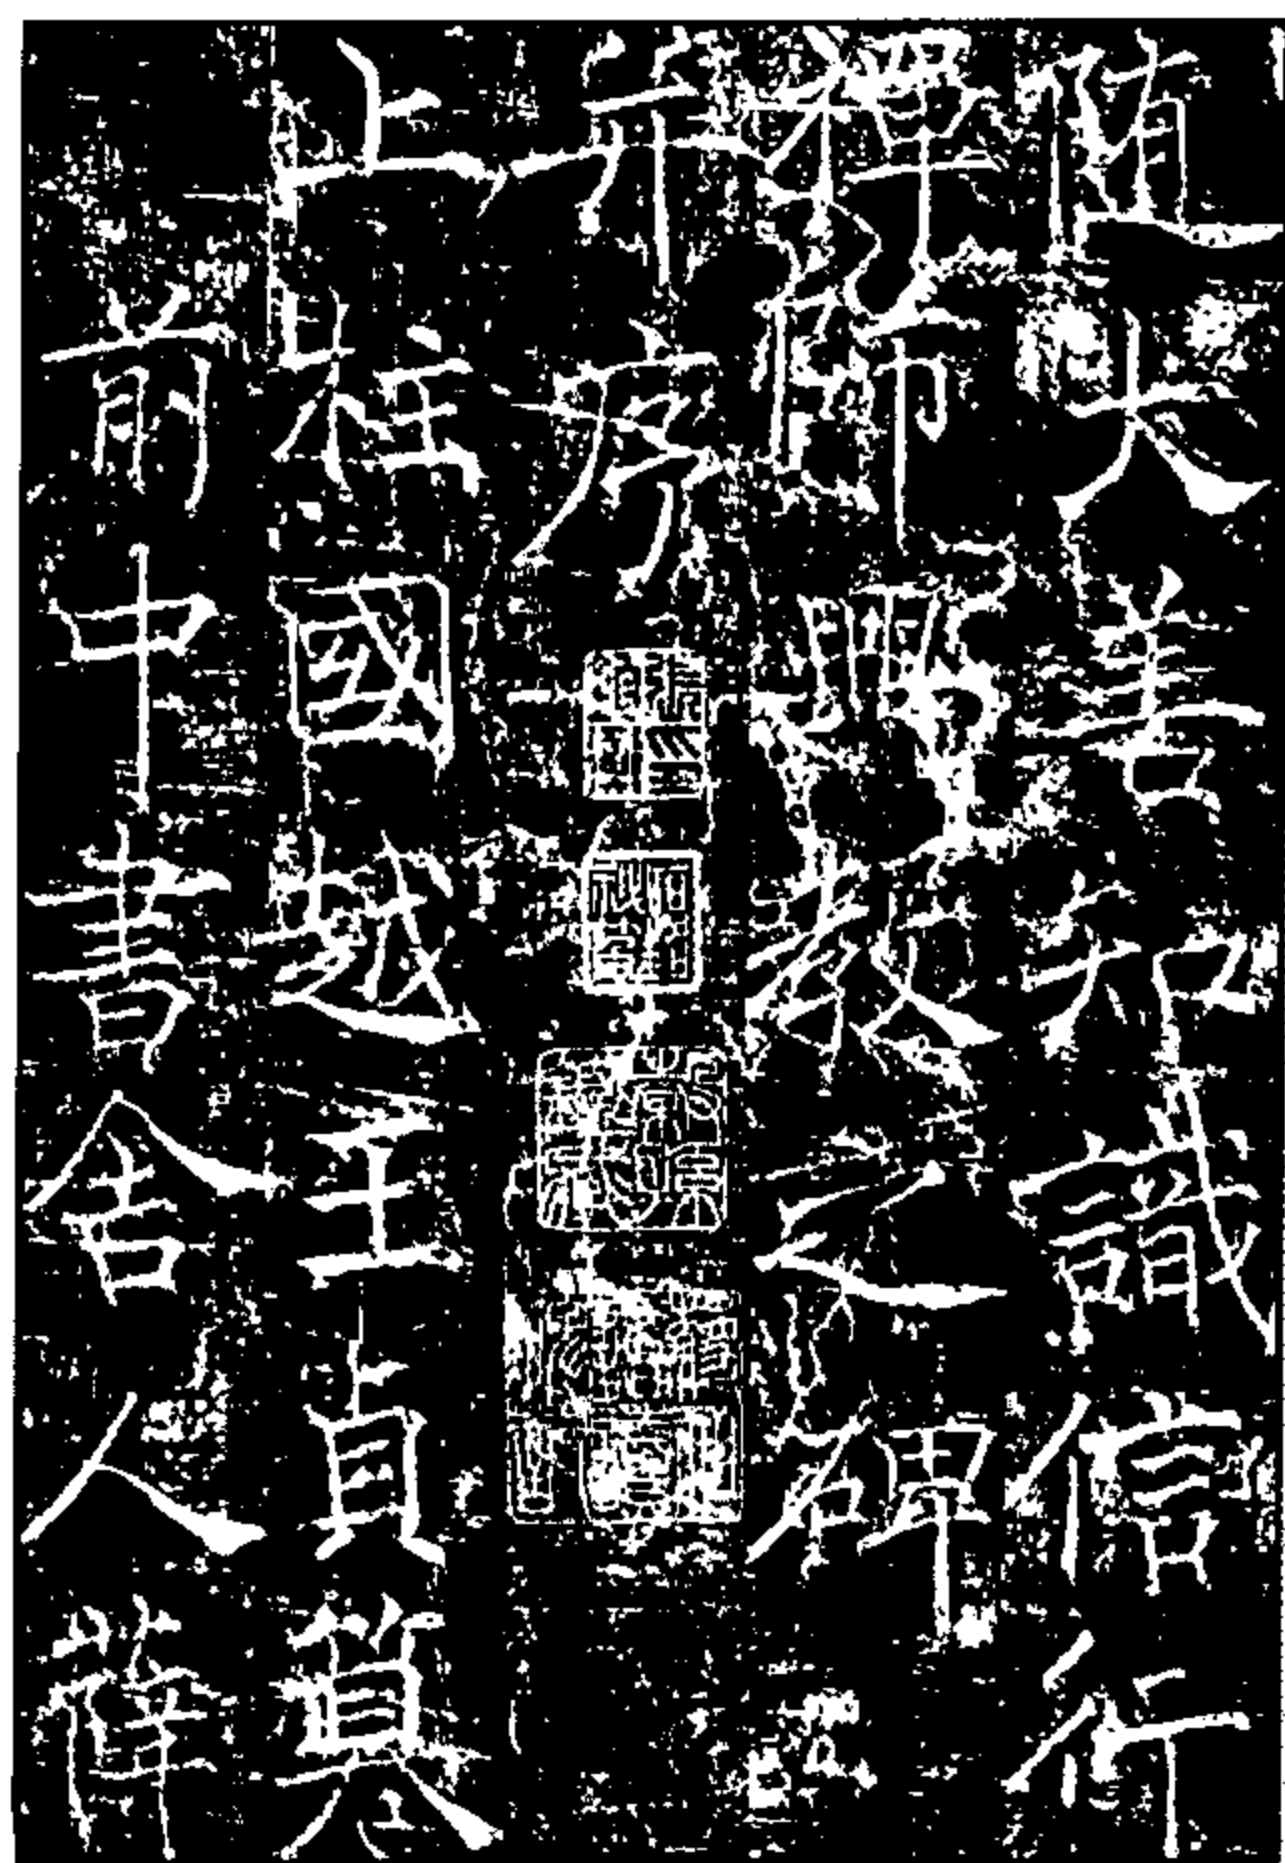 隨大善知識信行
禪師興教之碑
并序
上柱國越王貞篡
前中書舍人薛